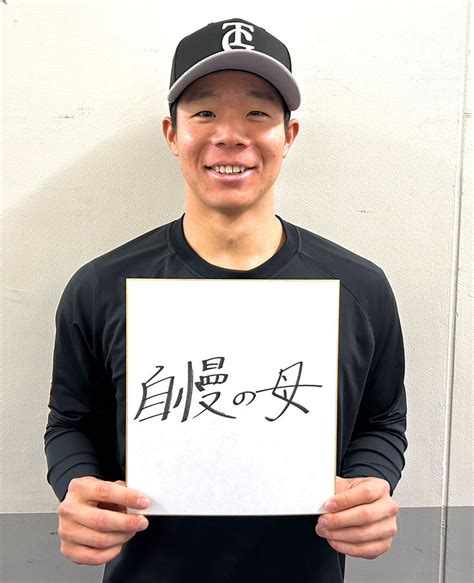 TG
自慢の母